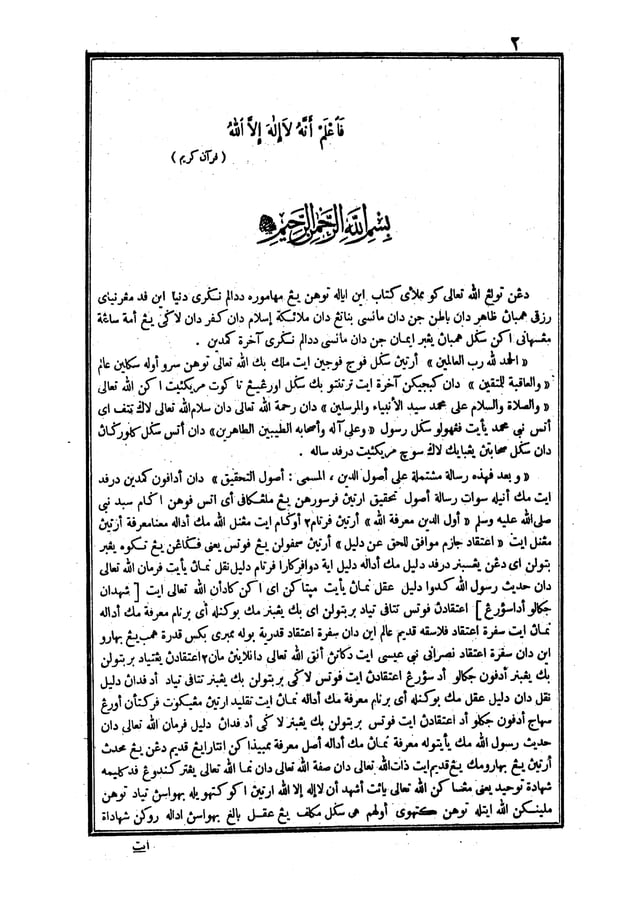 ٢
فَاعْلَمْ أَنَّهُ لاَ إِلٰهَ إِلاَّ اللهُ
( قرآن كريم )
بسم الله الرحمن الرحيم
دڠن تولوڠ الله تعالى كو ملاٴي كتاب اين اياله توهن يڠ مهاموره ددالم نڬري دنيا اين فد مڠرنياٴي
رزقي همبان ظاهر دان باطن جن دان مانسي بناتڠ دان ملائكة إسلام دان كفر دان لاڬي يڠ أمة ساڠة
مڠسهاني اكن سڬل همبان يڠبر ايمان جن دان مانسي ددالم نڬري آخرة كمدين .
« الحمد لله رب العالمين » أرتين سڬل فوج فوجين ايت ملك بڬ الله تعالى توهن سرو أوله سكلين عالم
« والعاقبة للمتقين » دان كبجيكن آخرة ايت ترتنتو بڬ سڬل اورڠيڠ تاكوت مريكئيت اكن الله تعالى
« والصلاة والسلام على محمد سيد الأنبياء والمرسلين » دان رحمة الله تعالى دان سلام الله تعالى لاڬ تتف اي
أتس نبي محمد يأيت فڠهولو سڬل رسول « وعلى آله وأصحابه الطيبين الطاهرين » دان أتس سڬل كلوركان
دان سڬل صحابتن يڠبايك لاڬ سوچ مريكئيت درفد ساله .
« وبعد فهذه رسالة مشتملة على أصول الدين ، المسمى : أصول التحقيق » دان أدافون كمدين درفد
ايت مك أنيله سوات رسالة أصول تحقيق ارتين فرسورهن يڠ ملڠكافي أي اتس فوهن اڬام سيد نبي
صلى الله عليه وسلم « أول الدين معرفة الله » أرتين فرتام٢ أوڬام ايت مڠنل الله مك أداله معنا معرفة أرتين
مڠنل ايت « اعتقاد جازم موافق للحق عن دليل » أرتين سمفولن يڠ فوتس يعني فڬڠن يڠ تڬوه يڠبر
بتولن اي دڠن يڠسبنر درفد دليل مك أداله دليل اية دوا فركارا فرتام دليل نقل نمان يأيت فرمان الله تعالى
دان حديث رسول الله كدوا دليل عقل نمان يأيت ميتاكن اي اكن كادأن الله تعالى ايت [ شهدان
جكالو أداسؤرڠ ] اعتقادن فوتس تتافي تياد بربتولن اي بڬ يڠبنر مك بوكنله أي برنام معرفة مك أداله
نمان ايت سفرة اعتقاد فلاسفه قديم عالم اين دان سفرة اعتقاد قدرية بوله ممبري بكس قدرة همب يڠ بهارو
اين دان سفرة اعتقاد نصراني نبي عيسى ايت دكاتن أنق الله تعالى دانلاين مان٢ اعتقادن يڠتياد بربتولن
بڬ يڠبنر أدفون جكالو أد سؤرڠ اعتقادن ايت فوتس لاڬي بربتولن بڬ يڠبنر تتافي تياد أد فدان دليل
نقل دان دليل عقل مك بوكنله أي برنام معرفة مك أداله نمان ايت تقليد ارتين مڠيكوت فركتأن أورڠ
سهاج أدفون جكلو أد اعتقادن ايت فوتس بربتولن بڬ يڠبنر لاڬي أد فدان دليل فرمان الله تعالى دان
حديث رسول الله مك يأيتوله معرفة نمان مك أداله أصل معرفة ممبيذاكن انتارايڠ قديم دڠن يڠ محدث
أرتين يڠ بهارومك يڠ قديم ايت ذات الله تعالى دان صفة الله تعالى دان نما الله تعالى يڠتركندوڠ فدكليمه
شهادة توحيد يعني مڠساكن الله تعالى يائت أشهد أن لاإله إلا الله ارتين اكوكتهويله بهواسن تياد توهن
ملينكن الله ايتله توهن كتهوي أولهم هي سڬل مكلف يڠ عقل بالغ بهواسن اداله روكن شهادة
ايت